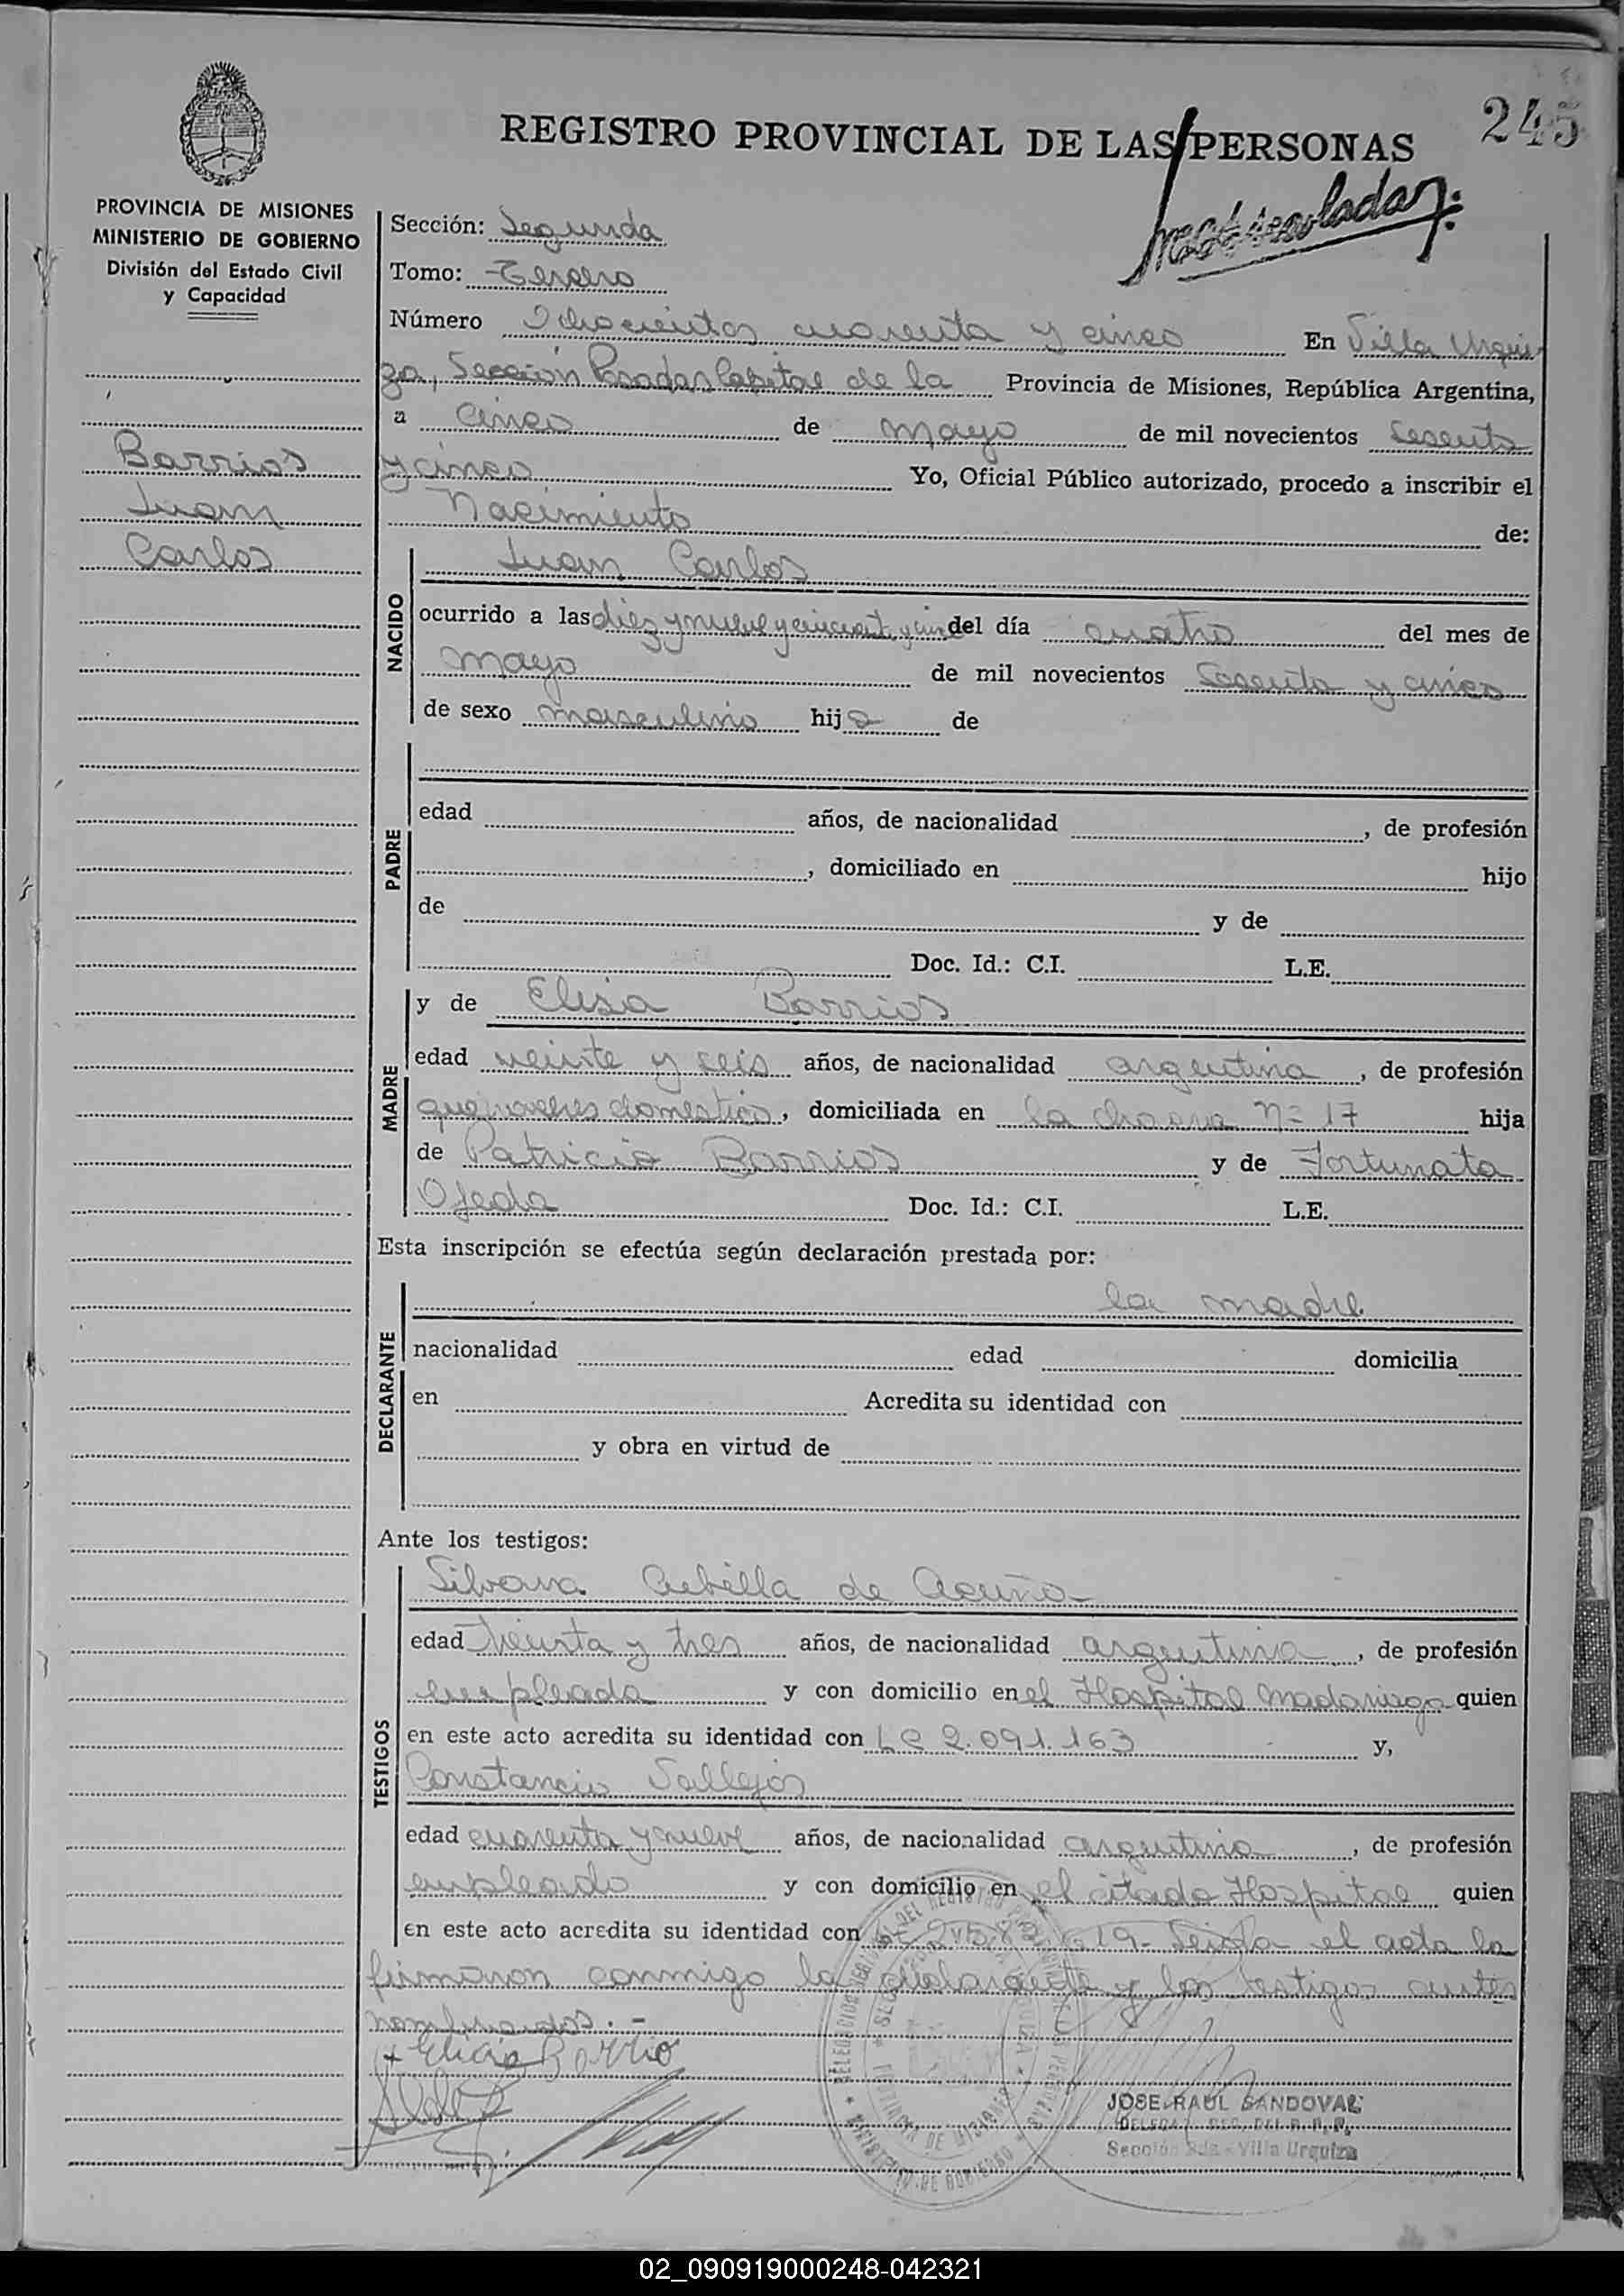 245
REGISTRO PROVINCIAL DE LAS PERSONAS
PROVINCIA DE MISIONES
MINISTERIO DE GOBIERNO
División del Estado Civil
y Capacidad
Barrios
Juan
Carlos
Sección: Segunda
Tomo: Tercero
Número Ochocientos cuarenta y cinco En Villa Urqui
za, Sección Posadas Capital de la Provincia de Misiones, República Argentina,
a cinco de mayo de mil novecientos sesenta
y cinco Yo, Oficial Público autorizado, procedo a inscribir el
Nacimiento de:
NACIDO
Juan Carlos
ocurrido a las diez y nueve y cincuenta y cinco del día cuatro del mes de
mayo de mil novecientos sesenta y cinco
de sexo masculino hijo de
PADRE
edad años, de nacionalidad , de profesión
, domiciliado en hijo
de y de
Doc. Id.: C.I. L.E.
MADRE
y de Elisa Barrios
edad veinte y seis años, de nacionalidad argentina, de profesión
quehaceres domesticos, domiciliada en la chacra Nº 17 hija
de Patricio Barrios y de Fortunata
Ojeda Doc. Id.: C.I. L.E.
Esta inscripción se efectúa según declaración prestada por:
la madre
DECLARANTE
nacionalidad edad domicilia
en Acredita su identidad con
y obra en virtud de
Ante los testigos:
TESTIGOS
Silvana de Acuña
edad treinta y tres años, de nacionalidad argentina, de profesión
empleada y con domicilio en el Hospital Madariaga quien
en este acto acredita su identidad con LC 2.091.163 y,
Constancio Vallejos
edad cuarenta y nueve años, de nacionalidad argentina, de profesión
empleado y con domicilio en el citado Hospital quien
en este acto acredita su identidad con Leida el acta la
firmaron conmigo la declarante y los testigos antes
nombrados.-
JOSE RAUL SANDOVAL
Sección 2da - Villa Urquiza
02_090919000248-042321